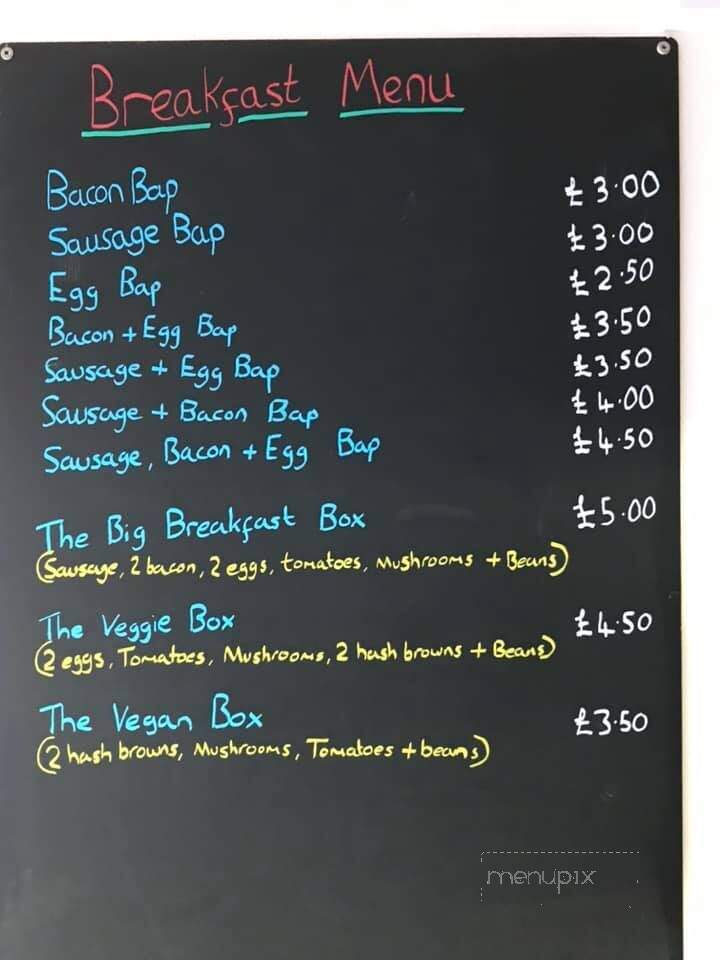 Breakfast Menu
Bacon Bap £3.00
Sausage Bap £3.00
Egg Bap £2.50
Bacon + Egg Bap £3.50
Sausage + Egg Bap £3.50
Sausage + Bacon Bap £4.00
Sausage, Bacon + Egg Bap £4.50
The Big Breakfast Box £5.00
(Sausage, 2 bacon, 2 eggs, tomatoes, Mushrooms + Beans)
The Veggie Box £4.50
(2 eggs, Tomatoes, Mushrooms, 2 hash browns + Beans)
The Vegan Box £3.50
(2 hash browns, Mushrooms, Tomatoes + beans)
menupix